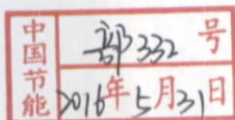 中国节能
部332号
2016年5月31日